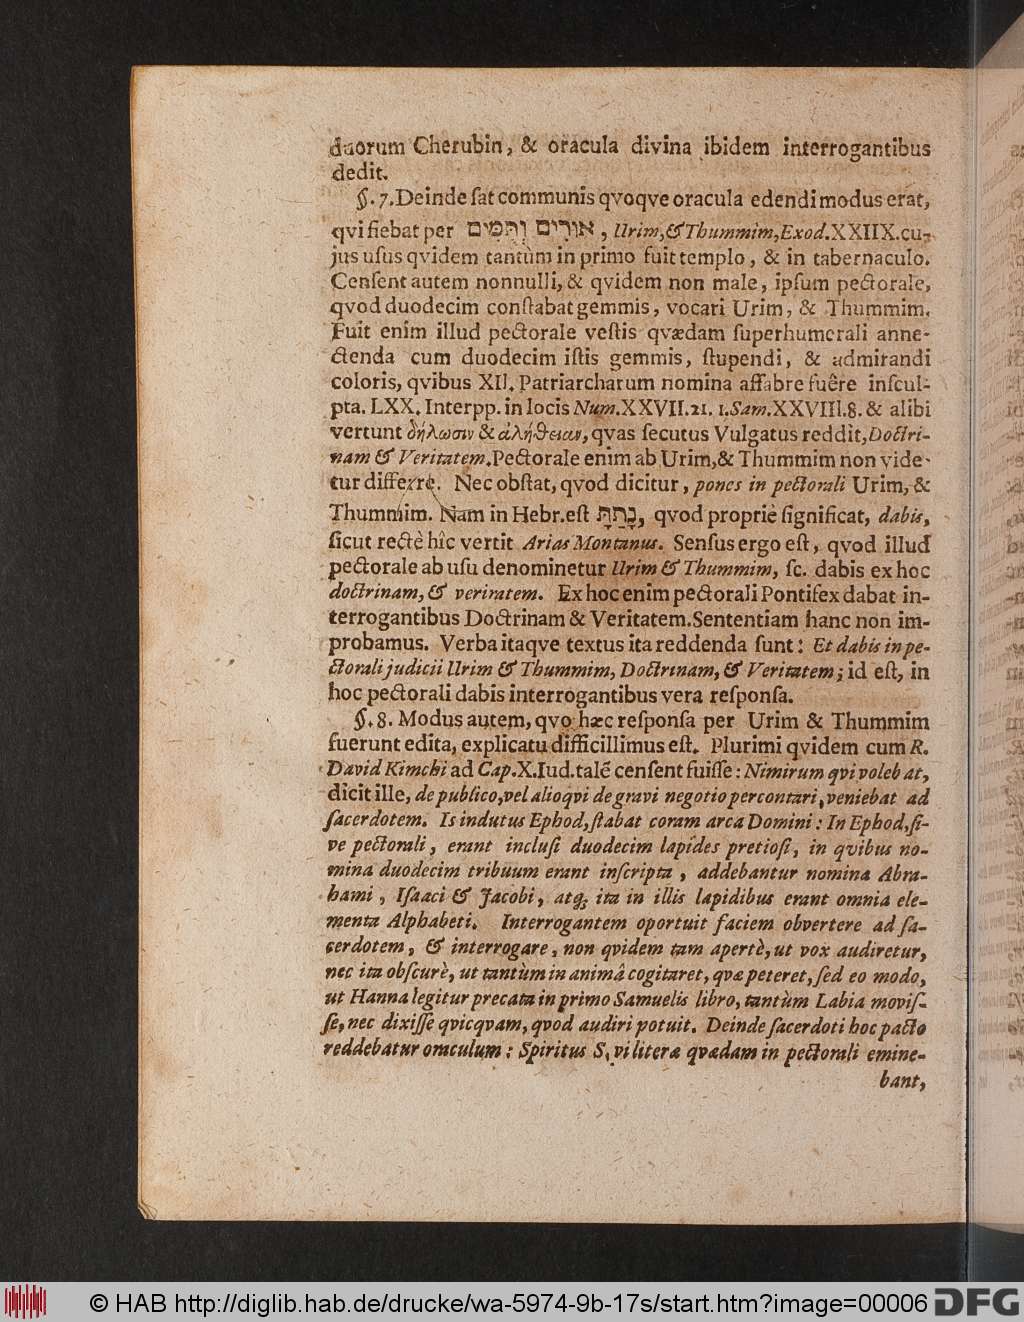 duorum Cherubin, & oracula divina ibidem interrogantibus
dedit.
§. 7. Deinde ſat communis qvoqve oracula edendi modus erat,
qvi fiebat per אוּרִים וְתֻּמִּים, Urim, & Thummim, Exod. XXIIX. cu-
jus uſus qvidem tantùm in primo fuit templo, & in tabernaculo.
Cenſent autem nonnulli, & qvidem non male, ipſum pectorale,
qvod duodecim conſtabat gemmis, vocari Urim, & Thummim.
Fuit enim illud pectorale veſtis qvædam ſuperhumerali anne-
ctenda cum duodecim iſtis gemmis, ſtupendi, & admirandi
coloris, qvibus XII. Patriarcharum nomina affabre fuêre inſcul-
pta. LXX. Interpp. in locis Num. XXVII. 21. 1. Sam. XXVIII. 8. & alibi
vertunt δήλωσιν & ἀλήθειαν, qvas ſecutus Vulgatus reddit, Doctri-
nam & Veritatem. Pectorale enim ab Urim, & Thummim non vide-
tur differre. Nec obſtat, qvod dicitur, pones in pectorali Urim, &
Thummim. Nam in Hebr. eſt נָתַתָּ, qvod propriè ſignificat, dabis,
ſicut rectè hîc vertit Arias Montanus. Senſus ergo eſt, qvod illud
pectorale ab uſu denominetur Urim & Thummim, ſc. dabis ex hoc
doctrinam, & veritatem. Ex hoc enim pectorali Pontifex dabat in-
terrogantibus Doctrinam & Veritatem. Sententiam hanc non im-
probamus. Verba itaqve textus ita reddenda ſunt: Et dabis in pe-
ctorali judicii Urim & Thummim, Doctrinam, & Veritatem; id eſt, in
hoc pectorali dabis interrogantibus vera reſponſa.
§. 8. Modus autem, qvo hæc reſponſa per Urim & Thummim
fuerunt edita, explicatu difficillimus eſt. Plurimi qvidem cum R.
David Kimchi ad Cap. X. Iud. talē cenſent fuiſſe: Nimirum qvi volebat,
dicit ille, de publico, vel alioqvi de gravi negotio percontari, veniebat ad
ſacerdotem. Is indutus Ephod, ſtabat coram arca Domini: In Ephod, ſi-
ve pectorali, erant incluſi duodecim lapides pretioſi, in qvibus no-
mina duodecim tribuum erant inſcripta, addebantur nomina Abra-
hami, Iſaaci & Jacobi, atq; ita in illis lapidibus erant omnia ele-
menta Alphabeti. Interrogantem oportuit faciem obvertere ad ſa-
cerdotem, & interrogare, non qvidem tam apertè, ut vox audiretur,
nec ita obſcurè, ut tantùm in animâ cogitaret, qvæ peteret, ſed eo modo,
ut Hanna legitur precata in primo Samuelis libro, tantùm Labia moviſ-
ſe, nec dixiſſe qvicqvam, qvod audiri potuit. Deinde ſacerdoti hoc pacto
reddebatur oraculum: Spiritus S. vi literæ qvædam in pectorali emine-
bant,
© HAB http://diglib.hab.de/drucke/wa-5974-9b-17s/start.htm?image=00006 DFG